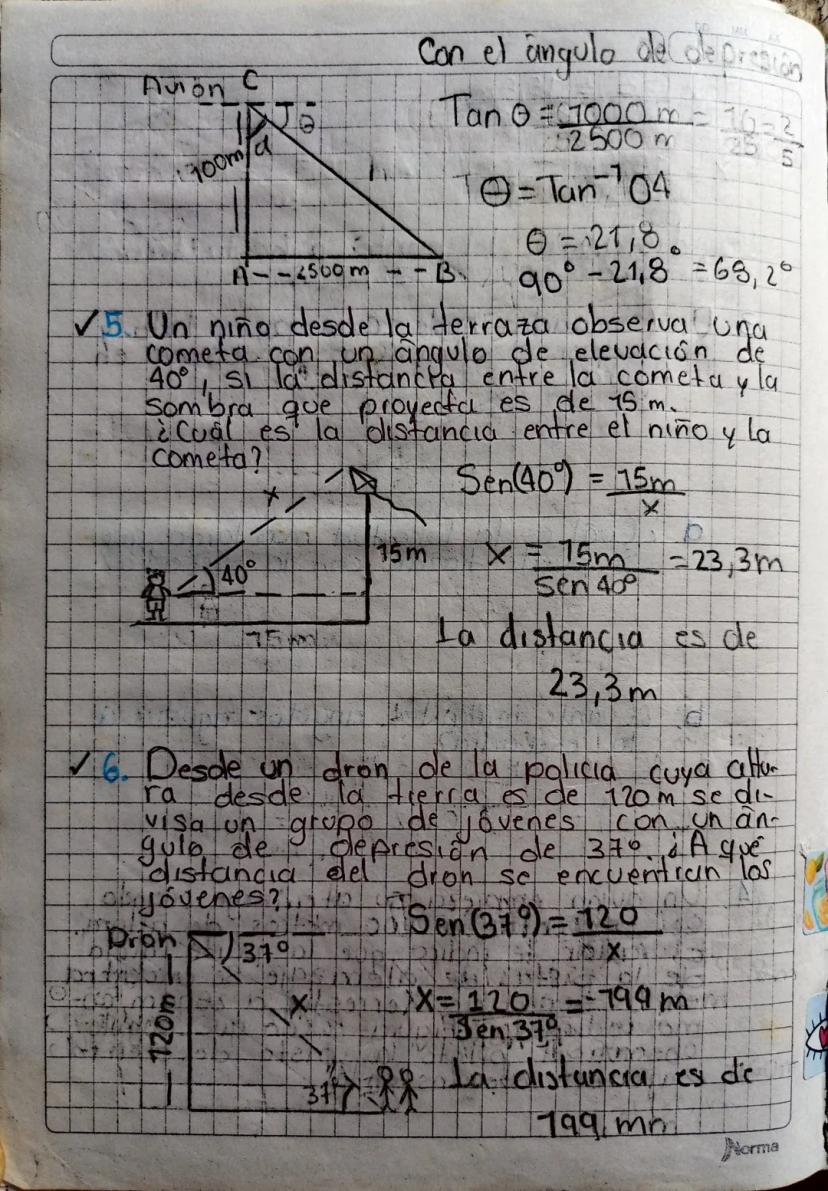 Con el ángulo de depresión
Avión C
θ
Tan θ = 1000 m = 10 = 2
2500 m 25 5
100m
α
θ = Tan⁻¹ 04
θ = 21,8°
A - - 2500m - - B
90° - 21,8 = 68,2°
✓ 5. Un niño desde la terraza observa una
cometa con un ángulo de elevación de
40°, si la distancia entre la cometa y la
sombra que proyecta es de 15 m.
¿Cuál es la distancia entre el niño y la
cometa?
Sen(40°) = 15m
x
x
40°
15m
x = 15m = 23,3m
Sen 40°
15m
La distancia es de
23,3m
✓ 6. Desde un dron de la policia cuya altu-
ra desde la tierra es de 120m se di-
visa un grupo de jóvenes con un án-
gulo de depresión de 37°. ¿A qué
distancia del dron se encuentran los
jóvenes?
Sen(37°) = 120
x
Dron
37°
120m
x
x = 120 = 199 m
Sen 37°
37°
La distancia es de
199 mn
Norma